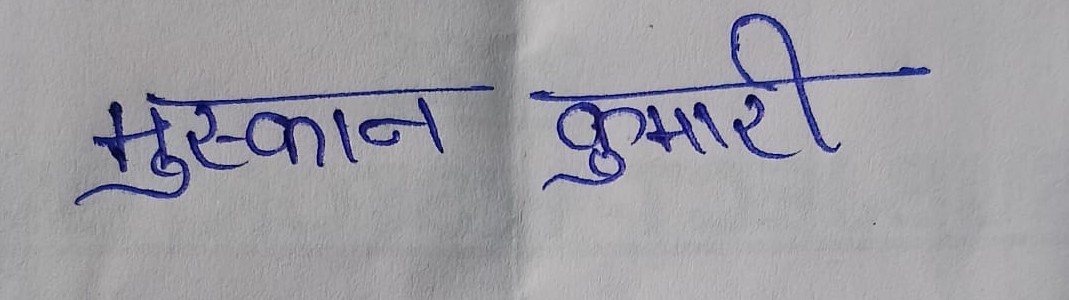 मुस्कान कुमारी